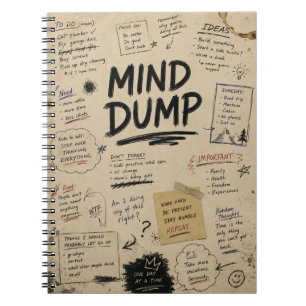 TO DO (maybe)
Call plumber
Fix garage door
Pick up dry cleaning
FOCUS ON:
Be better
Do good
Don't suck
remember
why you're
doing all
of this
IDEAS
Build something
Start a side hustle
Write a book
MIND
DUMP
Need
more coffee
more time
less idiots
SOMEDAY:
Road trip
Montana
Cabin
No phones
Just us
Note to self:
STOP
OVER
THINKING
EVERYTHING.
DON'T FORGET
oil change
mom's bday gift
IMPORTANT
Family
Health
Freedom
Experiences
People don't
anything
anymore.
WTF
Am I doing
any of this
right?
WORK HARD
BE PRESENT
STAY HUMBLE
REPEAT.
Random
Thoughts:
Time is the
only thing
you can't get
back.
THINGS I SHOULD
PROBABLY LET GO OF
grudges
perfect
what other people think
ONE DAY
AT A TIME
P.S.
Take more
vacations.
Seriously.